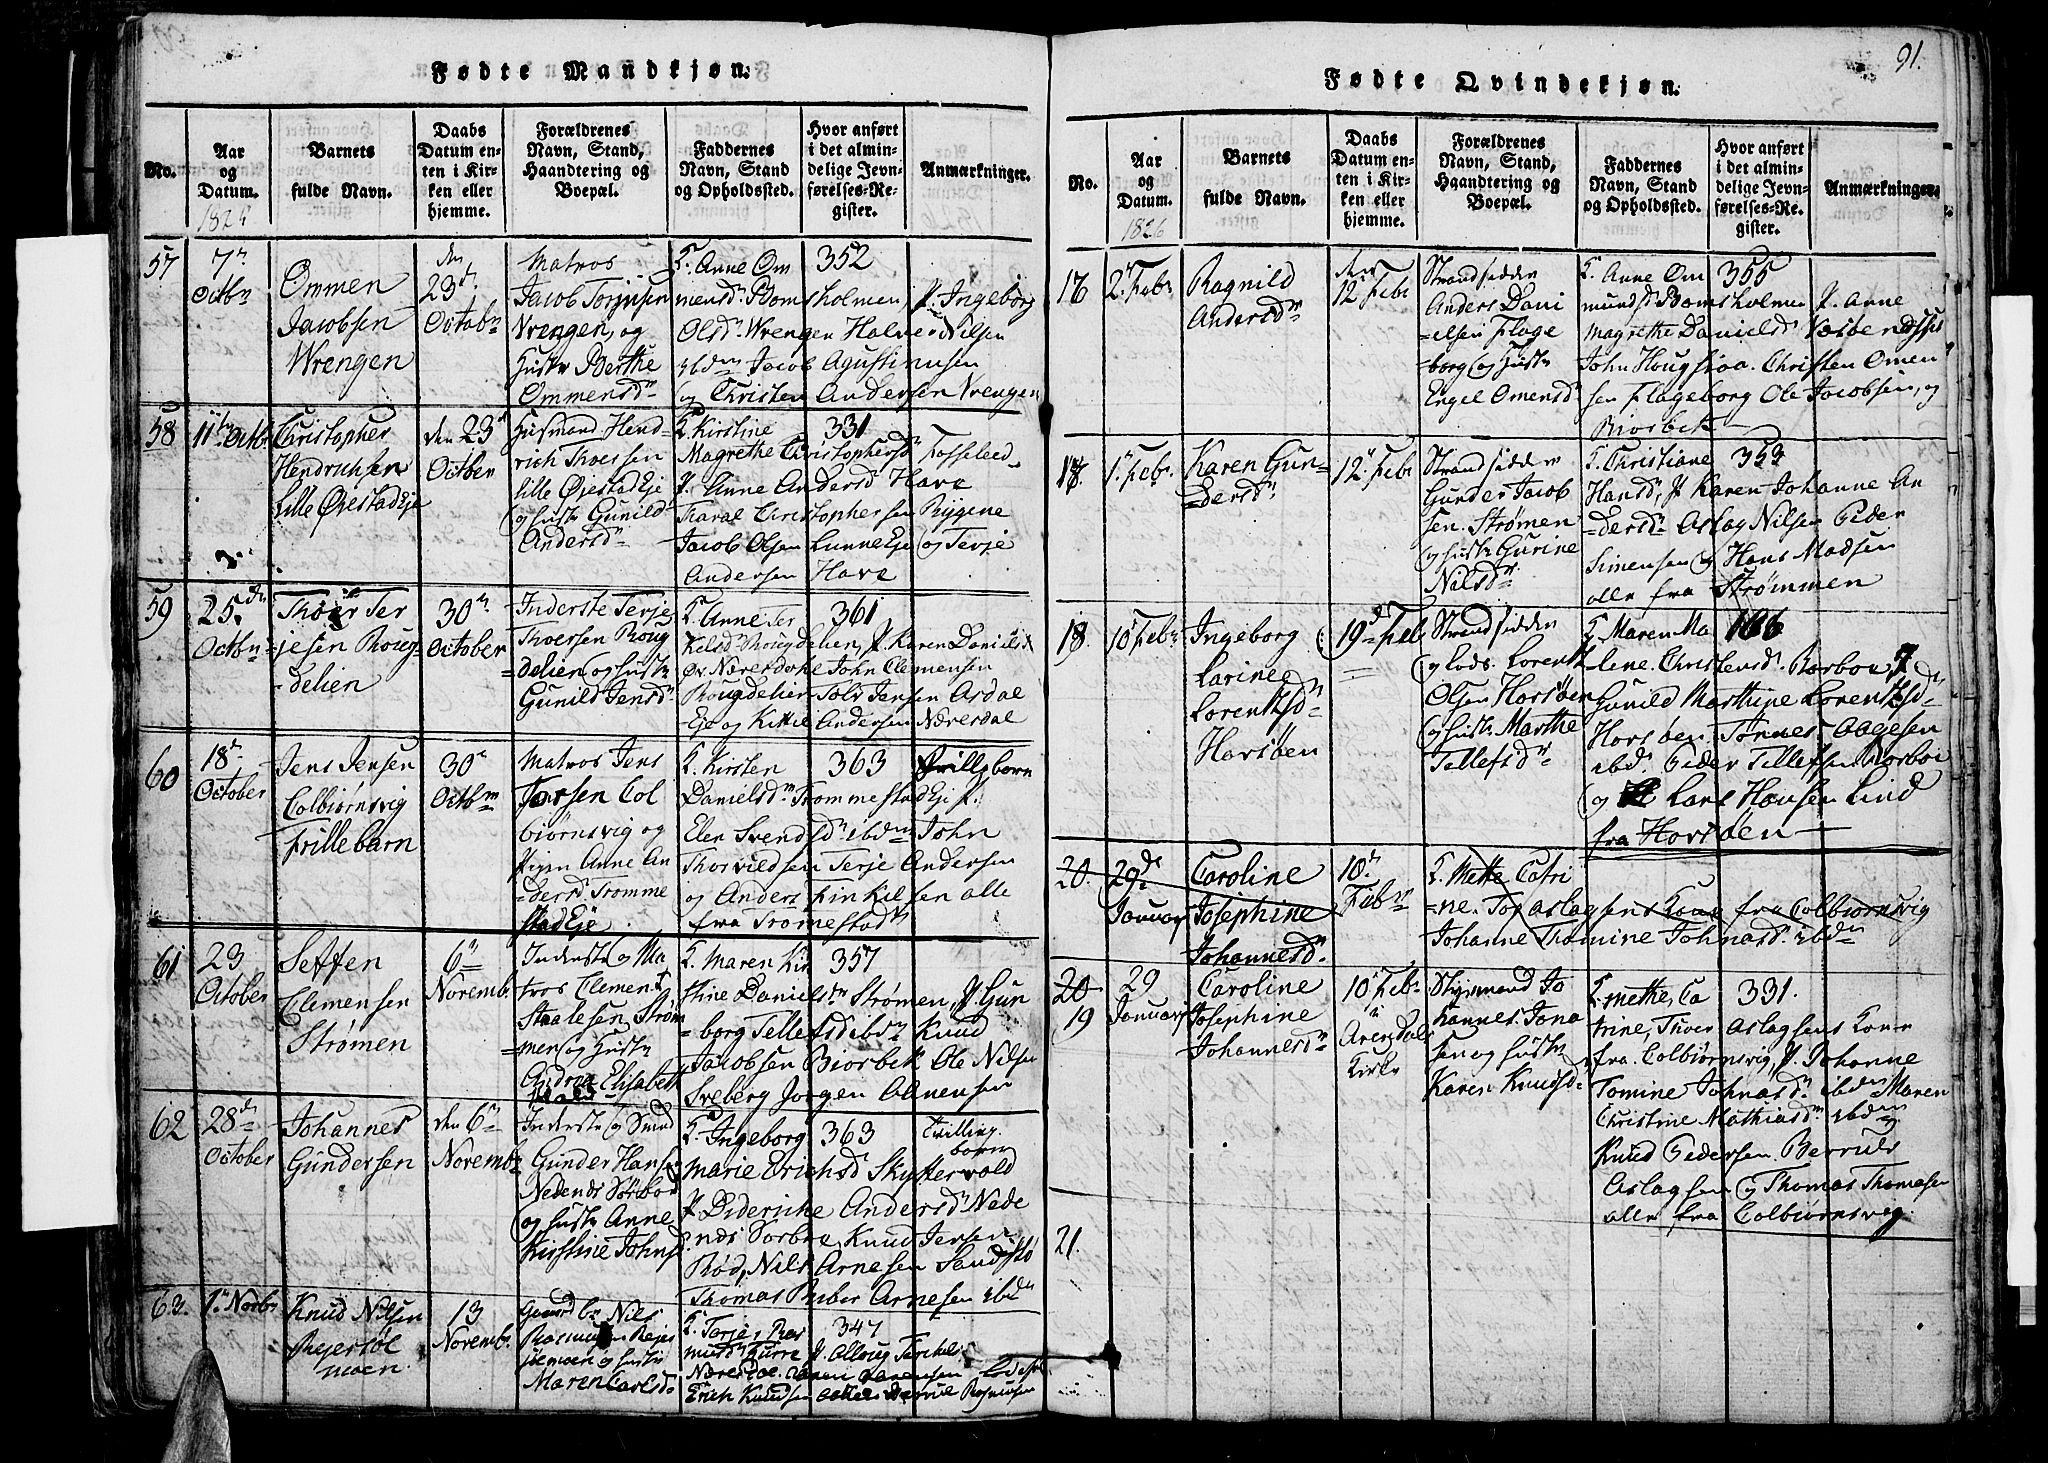 Fødte Mandkjøn.
No.
Aar
og
Datum.
Barnets
fulde Navn.
Daabs
Datum en-
ten i Kir-
ken eller
hjemme.
Forældrenes
Navn, Stand,
Haandtering og
Boepæl.
Faddernes
Navn, Stand
og Opholdssted.
Hvor anført
i det almin-
delige Jevn-
førelses-Re-
gister.
Anmærkninger.
57
7de
Octbr
Ommen
Jacobsen
Wrengen
den
23d
Octobr
Matros
Jacob Torjusen
Wrengen, og
Hustr Berthe
Ommensd
F. Anne Om 352
mensd Bomsholmen, P. Ingeborg
Olsd Wrengen Halvor Nilsen
ibdm Jacob Agustinusen
og Christen Andersen Wrengen
58
11te Octbr
Christopher
Hendrichsen
Lille ØrestadEje
den 23d
Octber
Husmand Hend
rich Thoersen
Lille ØiestadEje
og Hustr Gunild
Andersd
F. Kirstine 331
Magrethe Christophersd Fosseleed
P. Anne Andersd Have
Taral Christophersen Rygene
Jacob Olsen LunneEje og Terje
Andersen Have
59
25de
Octbr
Thoer Ter
jesen Roug
delien
30te
October
Inderste Terje
Thoersen Roug
delien og Hustr
Gunild Jensd
F. Anne Ter 361
kelsd Rougdelien, P. Karen Danielsd
Øv Næresdahl John Clemensen
Rougdelien Tolv Jensen Asdal
Eje og Kittil Andersen Næresdal
60
18d
October
Jens Jensen
Colbiørnsvig
Frillebarn
30te
Octbr
Matros Jens
Torsen Col
biørnsvig og
Pigen Anne An
dersd Tromme
stadEje
F. Kirsten 363 Frillebarn
Danielsd TrommestadEje P.
Elen Svendsd ibdm John
Thorvildsen Terje Andersen
og Anders Finkilsen alle
fra Tromestad
61
23
October
Steffen
Clemensen
Strømen
6te
Novembr
Inderste og Ma
tros Clement
Staalesen Strøm
men og Hustr
Andrea Elisabeth
F. Maren Kir 357
stine Danielsd Strømen, P. Gun
borg Tellefsd ibdm Knud
Jacobsen Biorbek Ole Nilsen
Sveberg Jorgen Aanensen
62
28de
October
Johannes
Gundersen
den 6te
Novembr
Inderste og Smed
Gunder Hansen
Nedenes Sorboe
og Hustr Anne
Kirstine Johnsd
F. Ingeborg 363 Tvilling
Marie Erichsd Skytterwold børn
P. Dideriche Andersd Nede
nes Sorboe, Knud Jensen
Rød, Nils Arnesen Sandstø
Thomas Arnesen ibdm
63
1te Novbr
Knud Nilsen
Rejersøl
moen
13
Novembr
Gaard br Nils
Rasmusen Rejer
jølmoen og Hustr
Maren Carlsd
F. Torje, Ras 347
P. Alloug Terchels
Erich Knudsen
Fødte Qvindekjøn.
91.
No.
Aar
og
Datum.
1826
Barnets
fulde Navn.
Daabs
Datum en-
ten i Kir-
ken eller
hjemme.
Forældrenes
Navn, Stand,
Haandtering og
Boepæl.
Faddernes
Navn, Stand
og Opholdssted.
Hvor anført
i det almin-
delige Jevn-
førelses-Re-
gister.
Anmærkninger.
16
2 Febr
Ragnild
Andersd
den
12 Febr
Strandsidder
Anders Dani
elsen Flage
borg og Hustr
Engel Omensd
F. Anne Om 355
mundsd Bomsholmen P. Anne
Magrethe Danielsd
John Hougstoa. Christen Omen
sen Flageborg Ole Jacobsen, og
Biorbek
17
1 Febr
Karen Gun-
dersd
12 Febr
Strandsidder
Gunder Jacob
sen Strømen
og Hustr Gurine
Nilsd
F. Christiane 353
Hansd, P Karen Johanne An
dersd Aslag Nilsen Peder
Simensen og Hans Madsen
alle fra Strømmen
18
10 Febr
Ingeborg
Larine
Lorentzsd
Havsöen
19d Feb
Strandsidder
og Lods Lorentz
Olsen Havsöen
og Hustr Marthe
Tellefsd
F. Maren Ma 166
lene Christensd Borboe P
Gunild Marthine Lorentzsd
Havsöen. Tønnes Aagesen
ibd. Peder Tellefsen Borboe
og Lars Hansen Lind
fra Havsöen
20
29de
Januar
Caroline
Josephine
Johannesd
10de
Febr
F. Mette Catri
ne. Tor Aslagsens Kone fra Colbiørnsvig
Johanne Tromine Johnasd ibdm
20
19
29
Januar
Caroline
Josephine
Johannesd
10 Febr
i
Arendals
Kirke
Styrmand Jo
hannes Jona
sen og Hustr
Karen Knudsd
F. Methe Ca 331.
trine, Thoer Aslagsens Kone
fra Colbiørnsvig, P. Johanne
Tomine Johnasd ibdm Maren
Christine Mathiasd ibdm
Knud Pedersen Berrud
Aslagsen og Thomas Thomasen
alle fra Colbiørnsvig.
21.